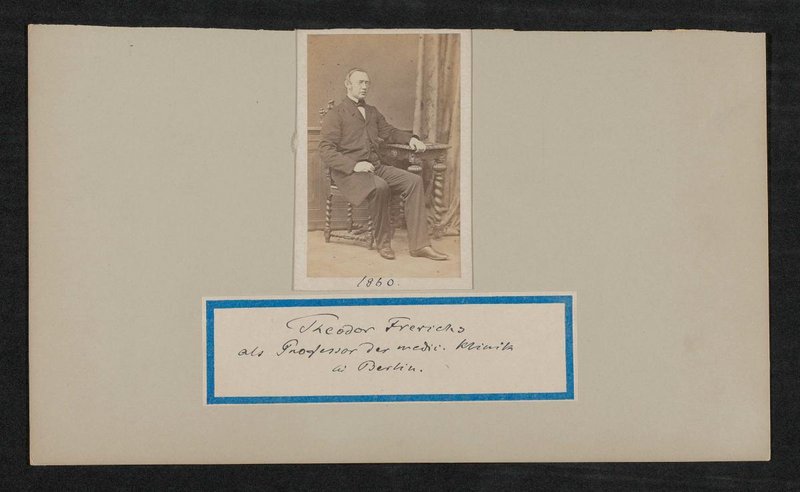 1860.
Theodor Frerichs
als Professor der medic. Klinik
in Berlin.